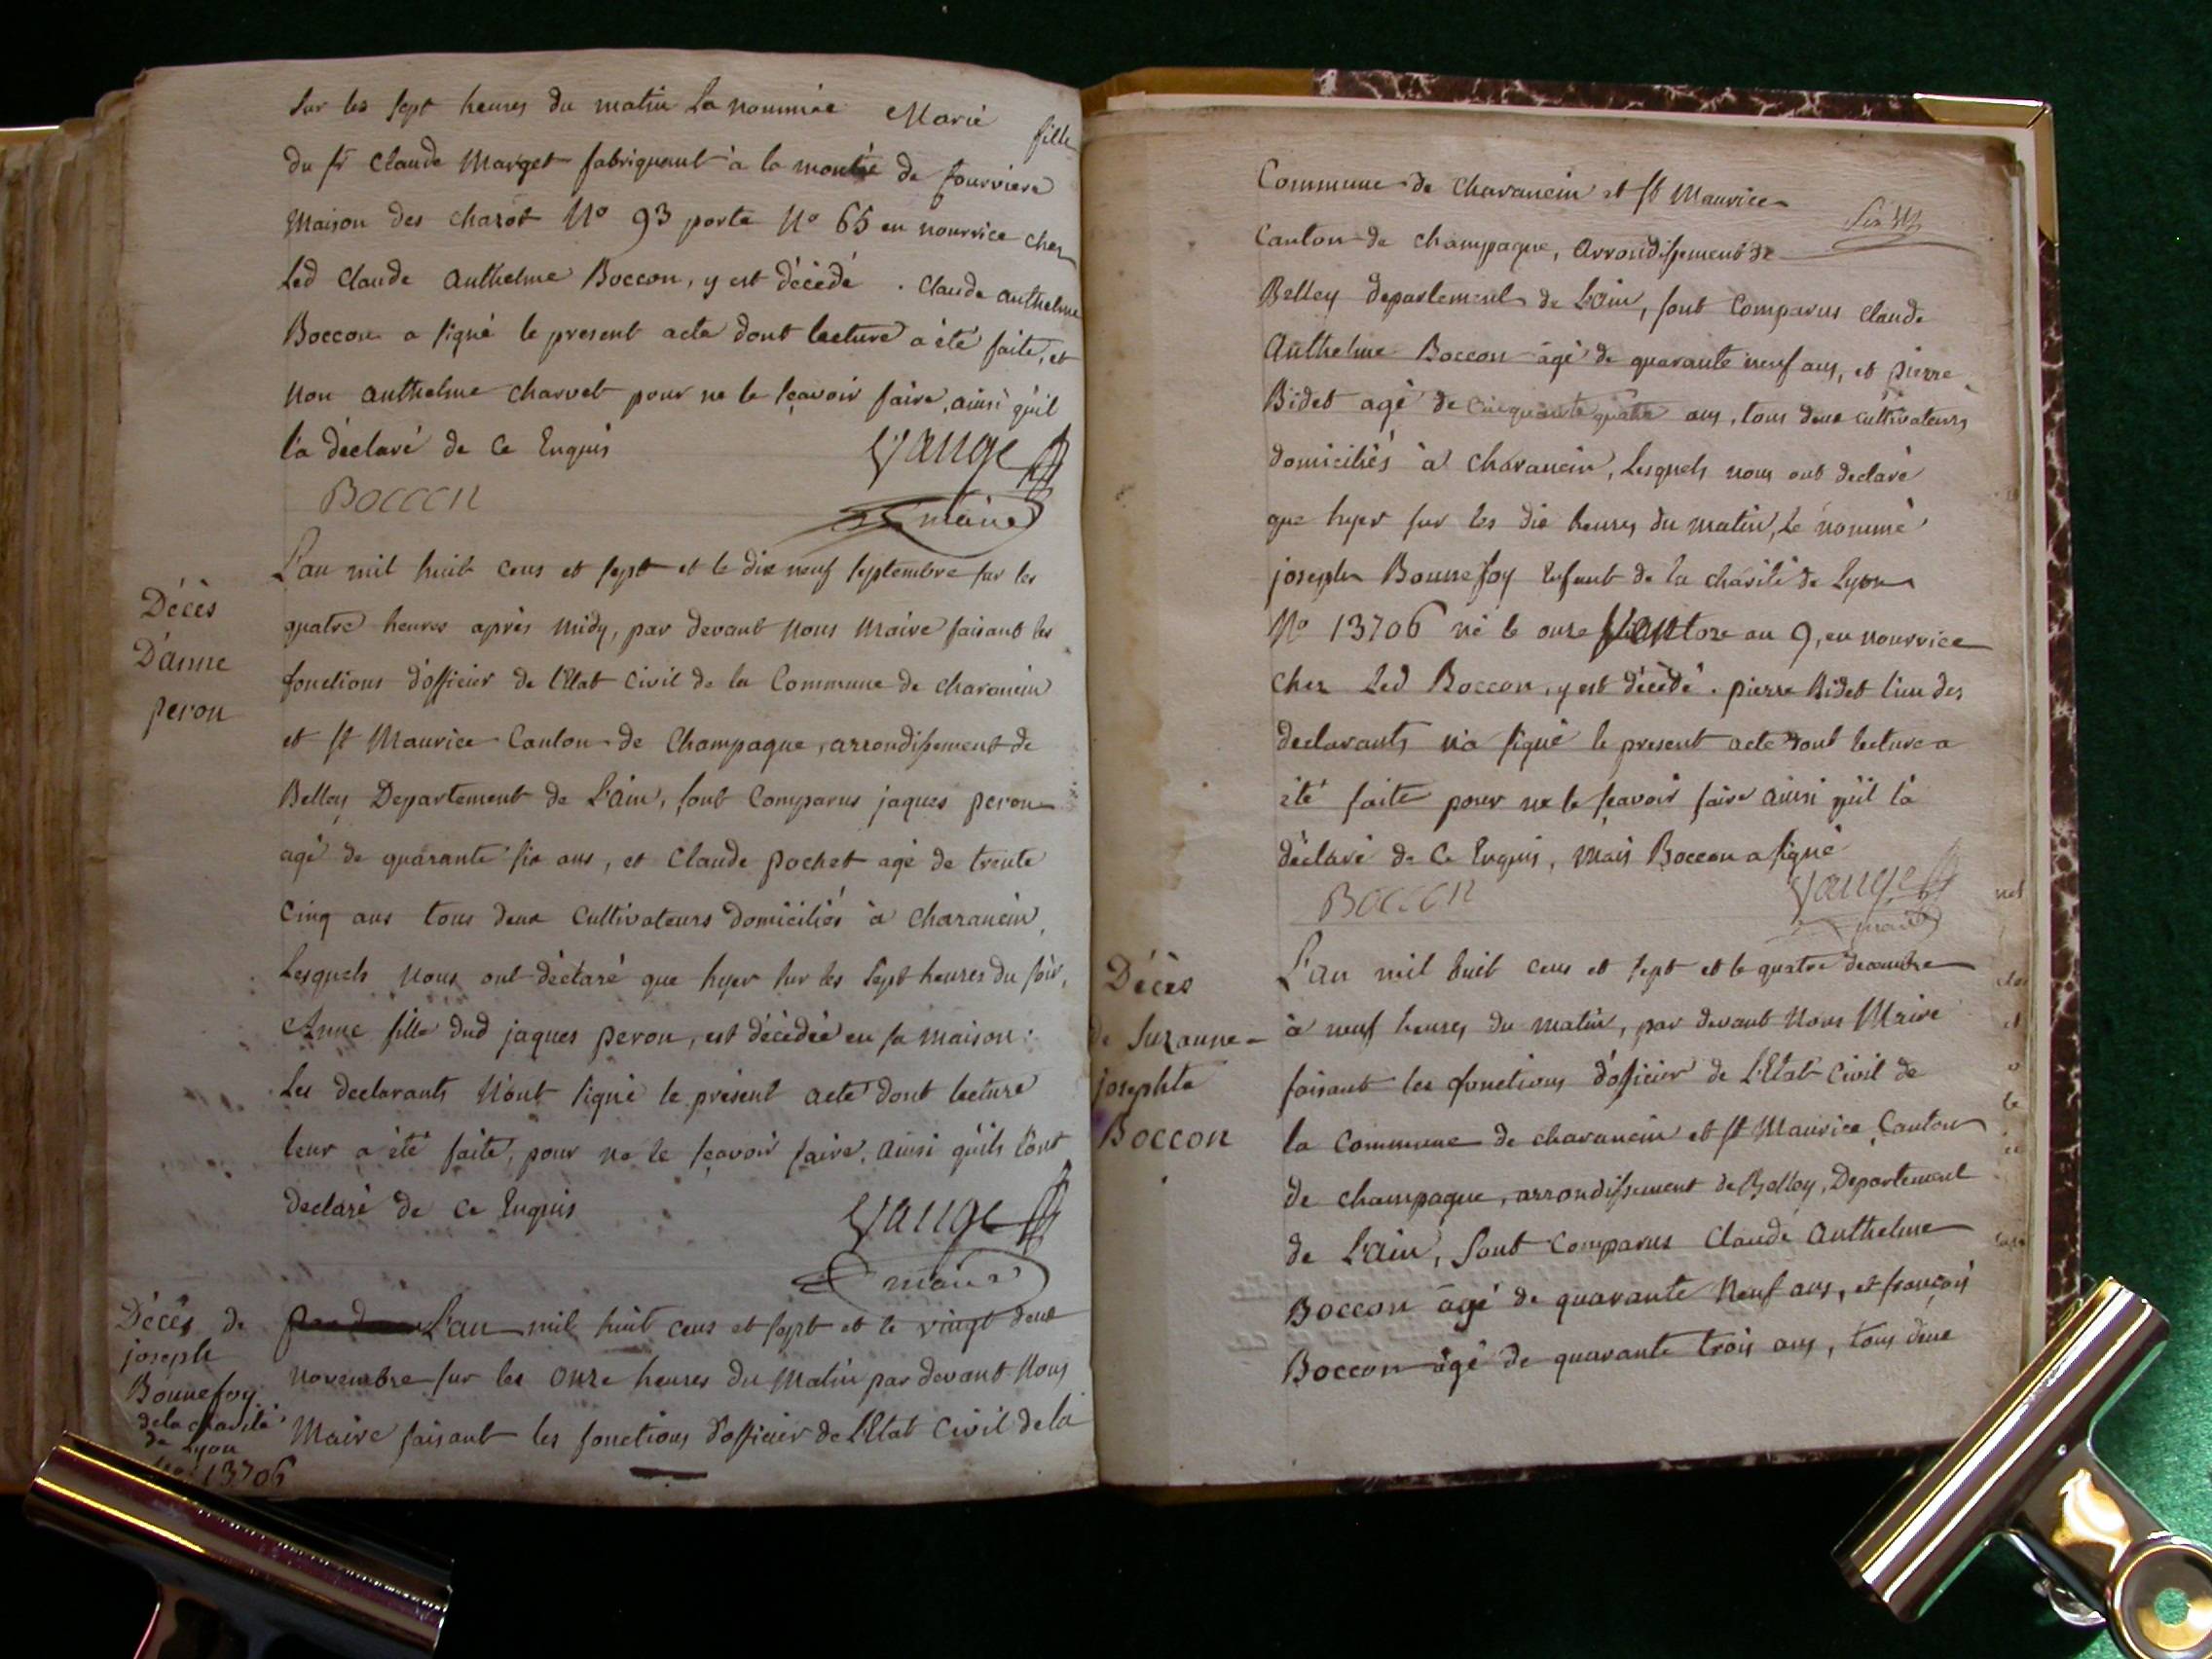 Sur les sept heures du matin La nommée Marie fille
du sr Claude Marget fabriquant à la montée de fourviere
Maison des chazot No 93 porte No 65 en nourrice chez
Led Claude Anthelme Boccon, y est décédé. Claude Anthelme
Boccon a signé le present acte dont lecture a été faite, et
Non Anthelme Charvet pour ne le sçavoir faire, ainsi qu'il
l'a déclaré de ce Enquis
Vange
Boccon
maire
Décès
D'anne
peron
L'an mil huit cens et sept et le dix neuf septembre sur les
quatre heures après midy, par devant Nous Maire faisant les
fonctions d'officier de l'Etat Civil de la Commune de charancin
et st Maurice Canton de Champagne, arrondissement de
Belley Departement de L'Ain, sont Comparus jaques peron
agé de quarante six ans, et Claude pochet agé de trente
Cinq ans tous deux Cultivateurs Domiciliés à Charancin,
Lesquels Nous ont déclaré que hyer sur les sept heures du soir,
Anne fille dud jaques peron, est décédée en sa maison:
Les declarants N'ont signé le présent acte dont lecture
leur a été faite, pour ne le sçavoir faire, ainsi qu'ils l'ont
declaré de ce Enquis
Vange
maire
Décès de
joseph
Bonnefoy
de la charité
de Lyon
No 13706
L'an mil huit cens et sept et le vingt deux
novembre sur les onze heures du Matin par devant Nous
Maire faisant les fonctions d'officier de l'Etat Civil de la
Commune de charancin et st Maurice
Canton de champagne, Arrondissement de
Belley departement de L'Ain, sont Comparus Claude
Anthelme Boccon agé de quarante neuf ans, et pierre
Bidet agé de cinquante quatre ans, tous deux cultivateurs
domiciliés à charancin, Lesquels nous ont declaré
que hyer sur les dix heures du matin, Le nommé
joseph Bonnefoy Enfant de la charité de Lyon
No 13706 né le onze Ventose an 9, en nourrice
chez Led Boccon, y est décédé. pierre Bidet l'un des
declarants n'a signé le present acte dont lecture a
été faite pour ne le sçavoir faire ainsi qu'il l'a
déclaré de ce Enquis, Mais Boccon a signé
Boccon
Vange
maire
Décès
de Suzanne
josephte
Boccon
L'an mil huit cens et sept et le quatre decembre
à neuf heures du matin, par devant Nous Maire
faisant les fonctions d'officier de L'Etat Civil de
la Commune de charancin et st Maurice Canton
de champagne, arrondissement de Belley, Departement
de L'Ain, Sont Comparus Claude Anthelme
Boccon agé de quarante Neuf ans, et françois
Boccon agé de quarante trois ans, tous deux